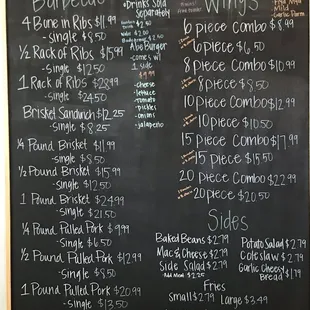 Barbecue
4 Bone in Ribs $11.99
-single $8.50
1/2 Rack of Ribs $15.99
-single $12.50
1 Rack of Ribs $28.99
-single $24.50
Brisket Sandwich $12.25
-single $8.25
1/4 Pound Brisket $11.99
-single $8.50
1/2 Pound Brisket $15.99
-single $12.50
1 Pound Brisket $24.99
-single $21.50
1/4 Pound Pulled Pork $9.99
-single $6.50
1/2 Pound Pulled Pork $12.99
-single $8.50
1 Pound Pulled Pork $20.99
-single
*Drinks Sold
Separately
Abo Burger
-comes w/
1 side
$9.99
-cheese
-lettuce
-tomato
-pickles
-onions
-jalapeño
Wings
-Mild
-Garlic Parm
6 piece Combo $8.99
6 piece $6.50
8 piece Combo $10.99
8 piece $8.50
10 piece Combo $12.99
10 piece $10.50
15 piece Combo $17.99
15 piece $15.50
20 piece Combo $22.99
20 piece $20.50
Sides
Baked Beans $2.79
Mac & Cheese $2.79
Side Salad $2.79
Potato Salad $2.79
Coleslaw $2.79
Garlic Cheesy
Bread $1.79
Fries
Small $2.79 Large $3.49